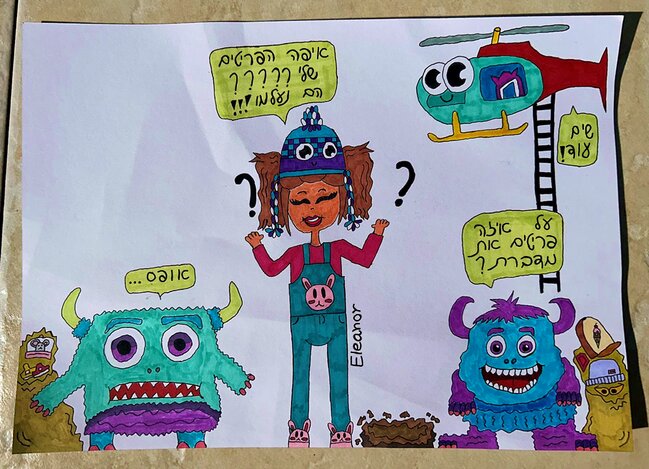 איפה הפרטים
שלי ?????
הם נעלמו!!!
שים
עוד!
?
?
על איזה
פרטים את
מדברת?
אופס...
Eleanor